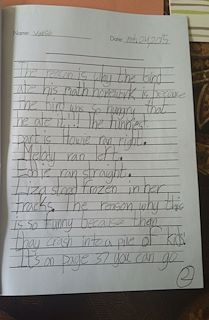 Name: 
Date: 
The reason is why the bird
ate his math homework is because
the bird was so hungry that
he ate it!!! The funniest
part is Howie ran right.
Melody ran left.
Eddie ran straight.
Liza stood frozen in her
tracks. The reason why this
is so funny because then
they crash into a pile of kids.
It's on page 57 you can go
2